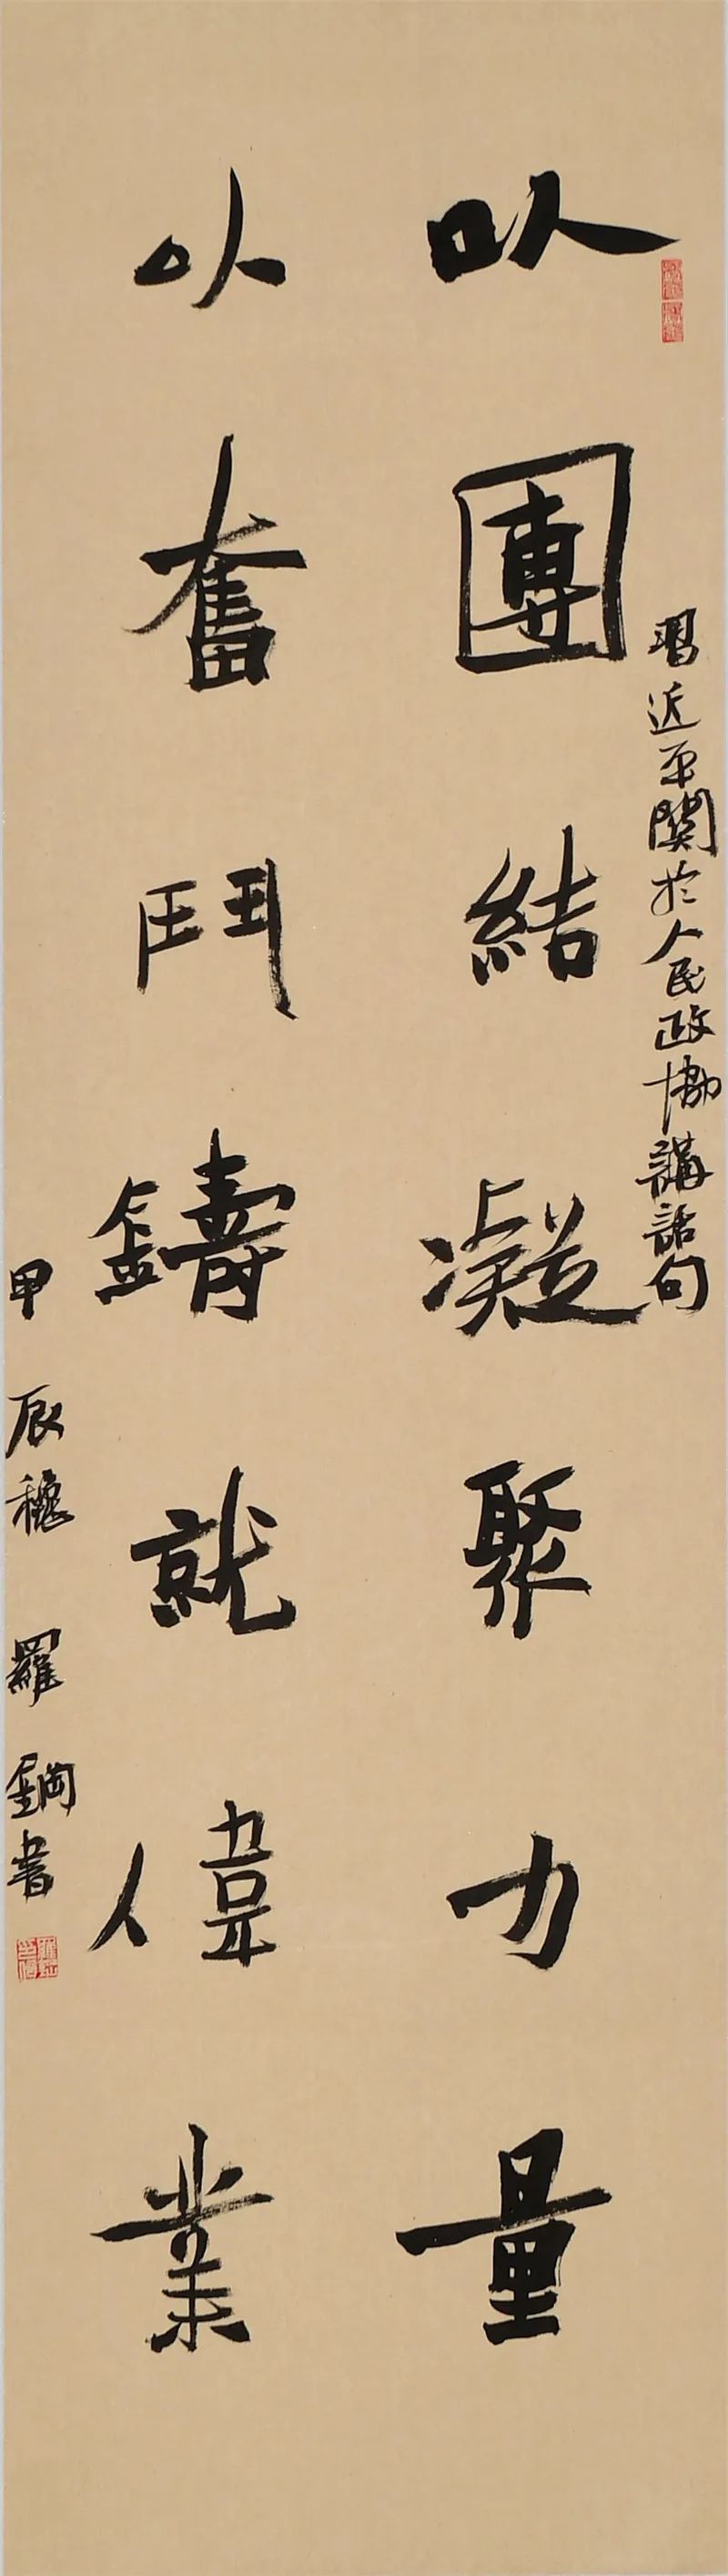 習近平關於人民政協講話句
以團結凝聚力量
以奮鬥鑄就偉業
甲辰穐 羅鋼書